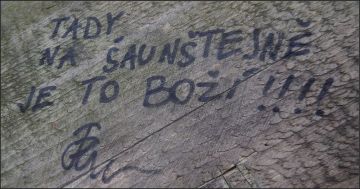 TADY
NA ŠAUNŠTEJNĚ
JE TO BOŽÍ!!!!